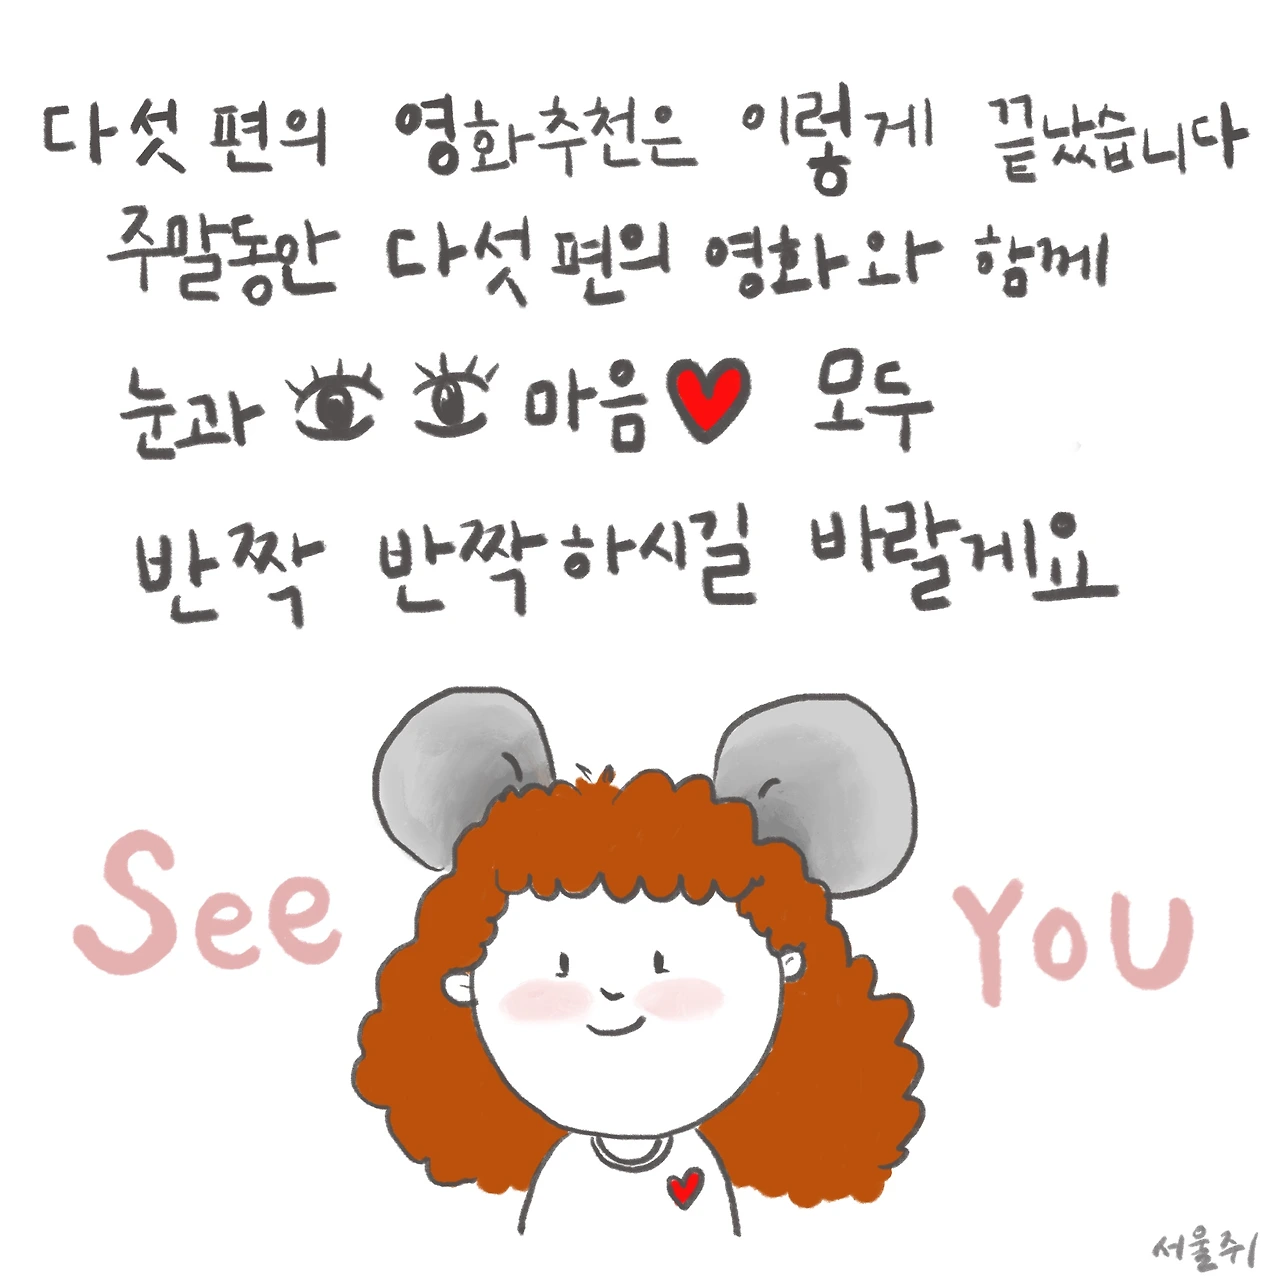 다섯 편의 영화추천은 이렇게 끝났습니다
주말동안 다섯 편의 영화와 함께
눈과 마음 모두
반짝 반짝하시길 바랄게요
See You
서울쥐